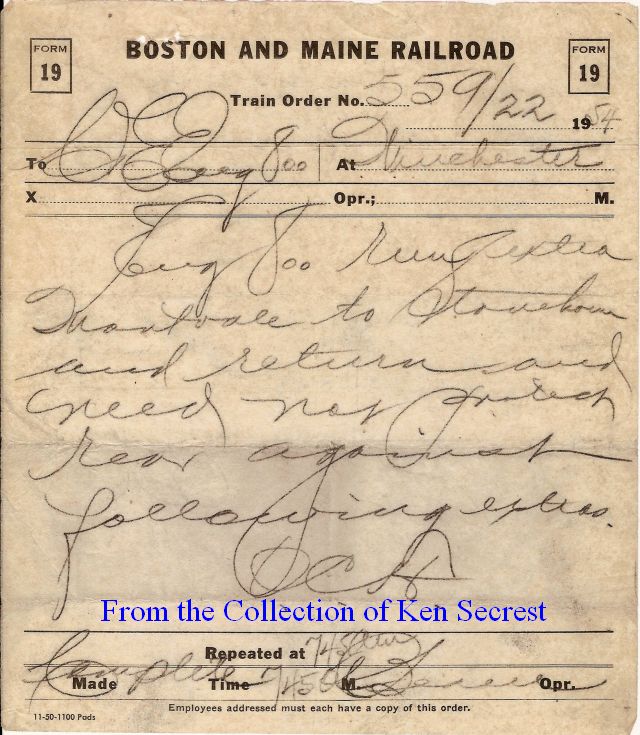 FORM 19
BOSTON AND MAINE RAILROAD
FORM 19
Train Order No. 559/22 1954
To C&E Eng 800 At Winchester
X Opr.; M.
Eng 800 run extra
Montvale to Stoneham
and return and
need not protect
rear against
following extras.
From the Collection of Ken Secrest
Repeated at 745
Complete 745
Made Time M. Opr.
Employees addressed must each have a copy of this order.
11-50-1100 Pads